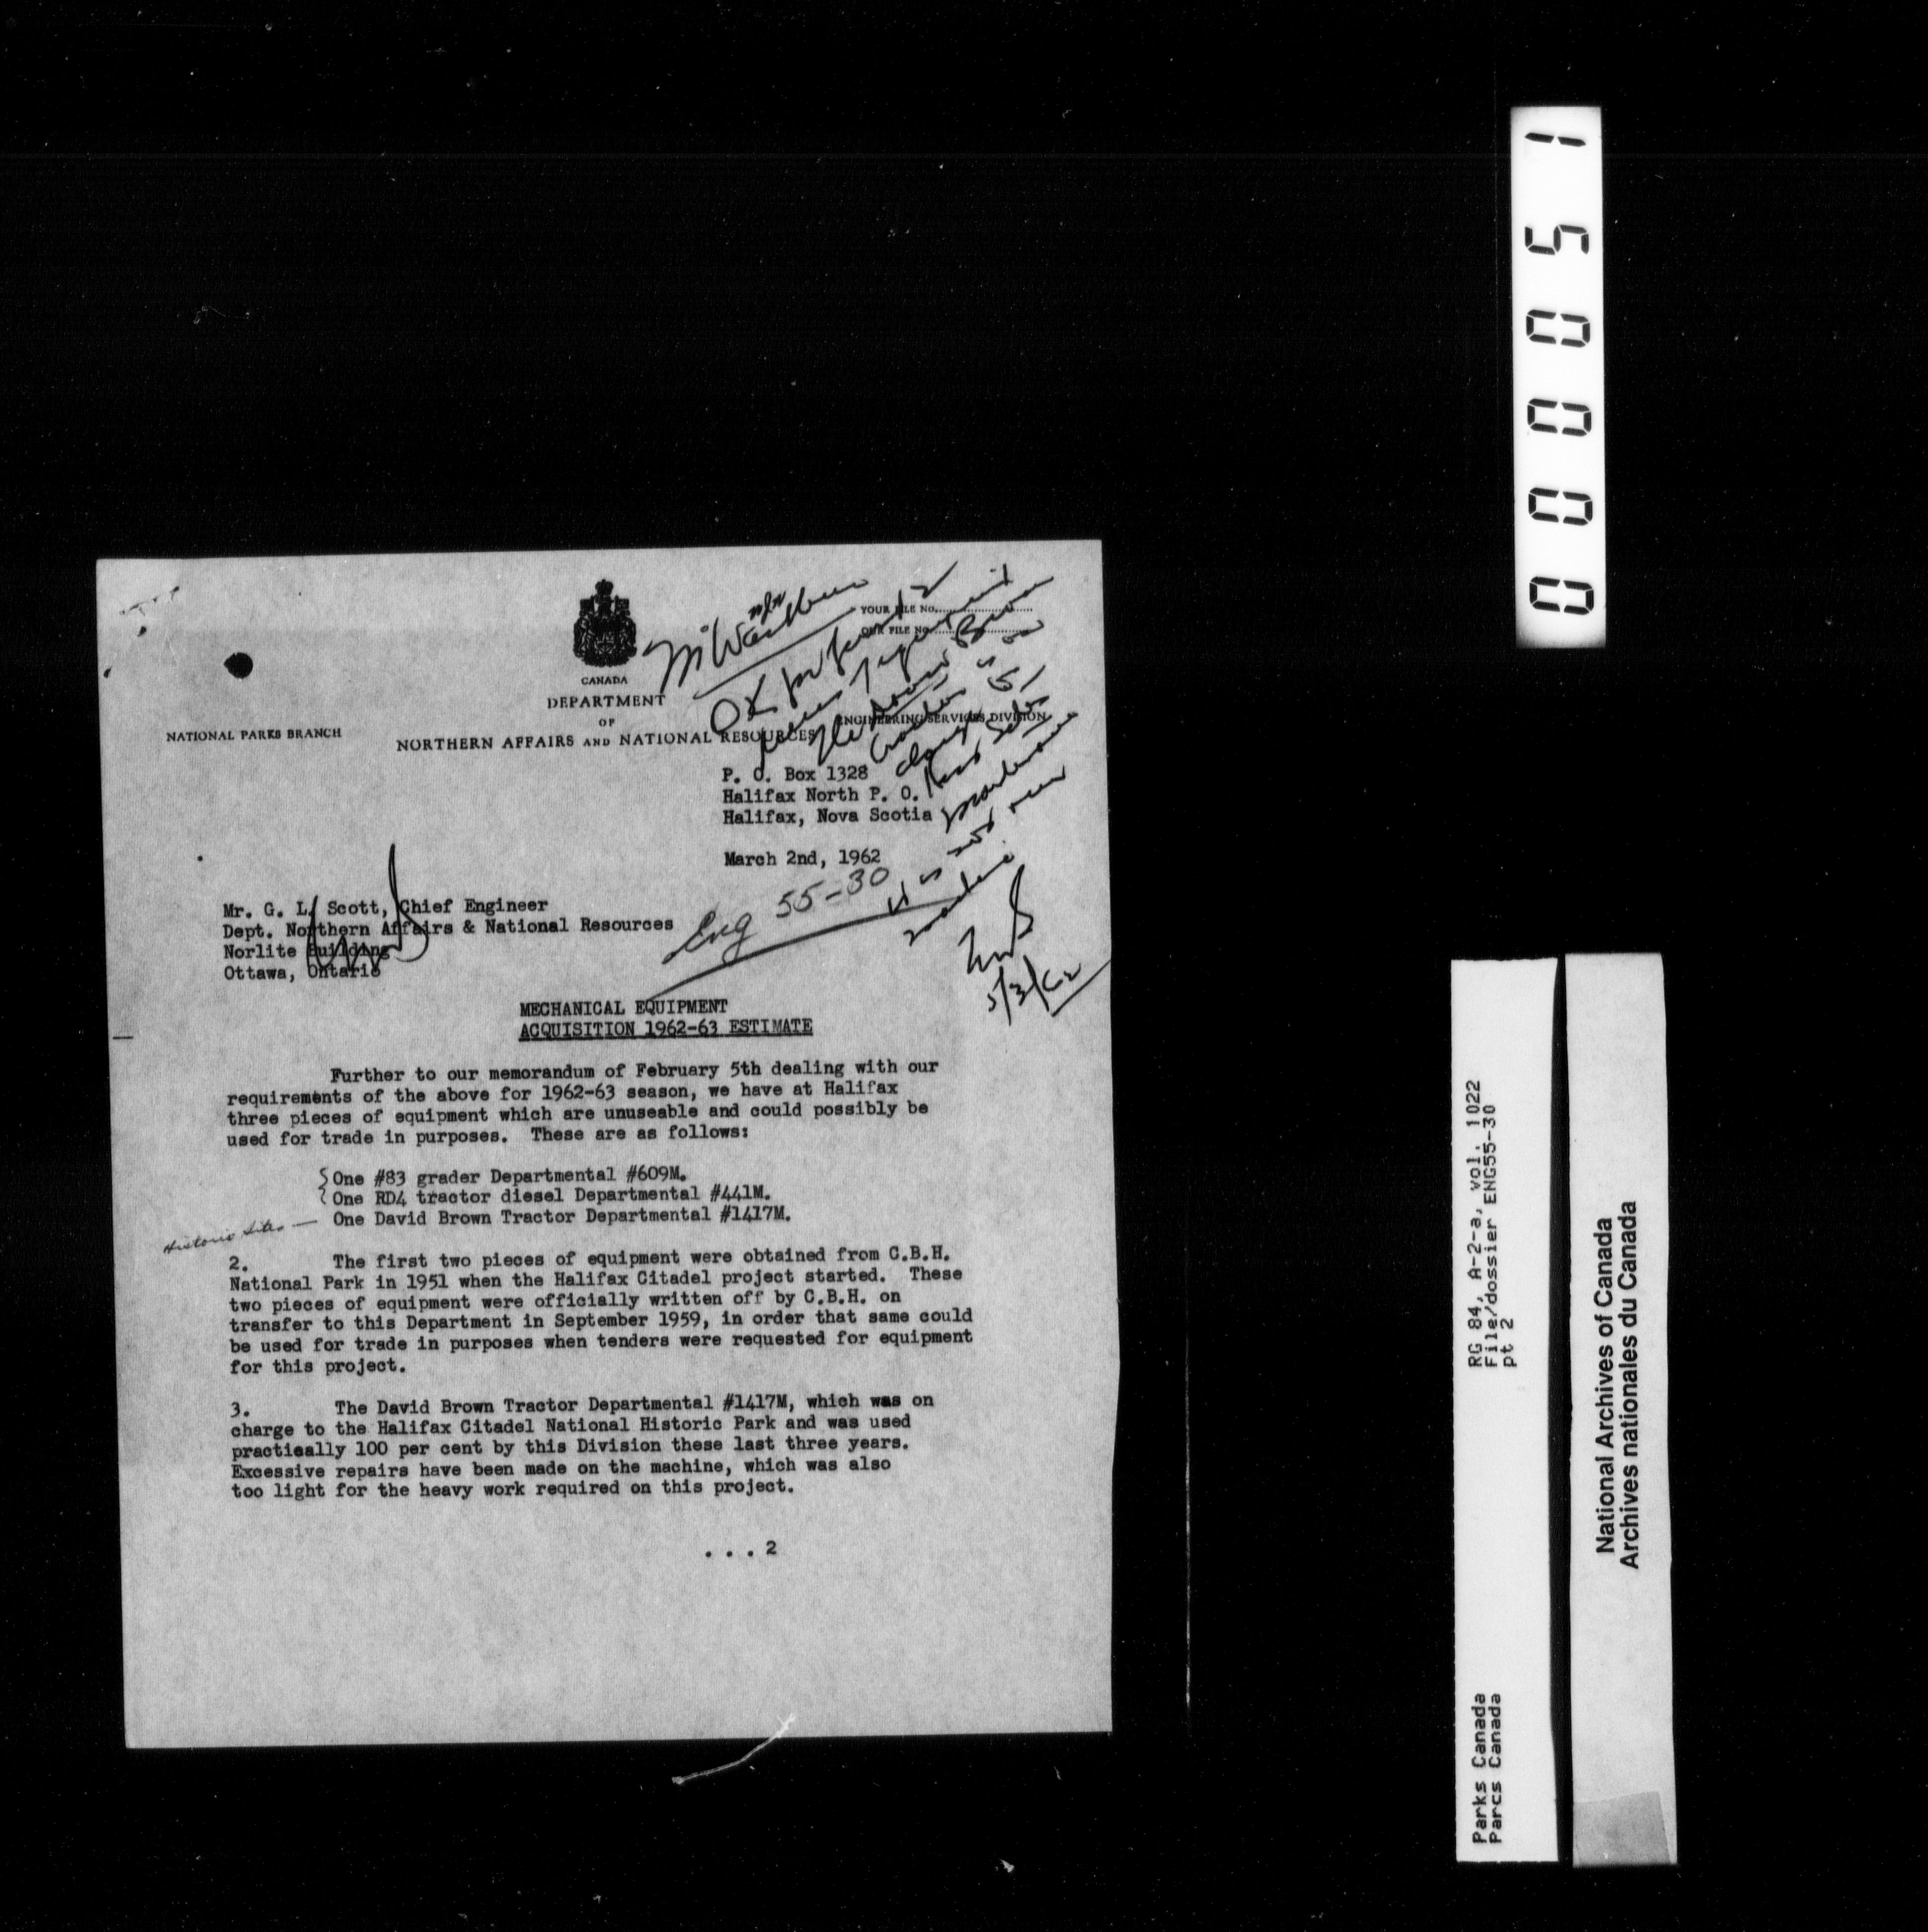 YOUR FILE NO.
OUR FILE NO.
CANADA
DEPARTMENT
OF
NORTHERN AFFAIRS AND NATIONAL RESOURCES
NATIONAL PARKS BRANCH
ENGINEERING SERVICES DIVISION
OK for first 2
P. O. Box 1328
Halifax North P. O.
Halifax, Nova Scotia
March 2nd, 1962
Eng 55-30
5/3/62
Mr. G. L. Scott, Chief Engineer
Dept. Northern Affairs & National Resources
Norlite Building
Ottawa, Ontario
MECHANICAL EQUIPMENT
ACQUISITION 1962-63 ESTIMATE
Further to our memorandum of February 5th dealing with our
requirements of the above for 1962-63 season, we have at Halifax
three pieces of equipment which are unuseable and could possibly be
used for trade in purposes. These are as follows:
One #83 grader Departmental #609M.
One RD4 tractor diesel Departmental #441M.
Historic Sites — One David Brown Tractor Departmental #1417M.
2. The first two pieces of equipment were obtained from C.B.H.
National Park in 1951 when the Halifax Citadel project started. These
two pieces of equipment were officially written off by C.B.H. on
transfer to this Department in September 1959, in order that same could
be used for trade in purposes when tenders were requested for equipment
for this project.
3. The David Brown Tractor Departmental #1417M, which was on
charge to the Halifax Citadel National Historic Park and was used
practically 100 per cent by this Division these last three years.
Excessive repairs have been made on the machine, which was also
too light for the heavy work required on this project.
. . . 2
000051
RG 84, A-2-a, vol. 1022
File/dossier ENG55-30
pt 2
Parks Canada
Parcs Canada
National Archives of Canada
Archives nationales du Canada